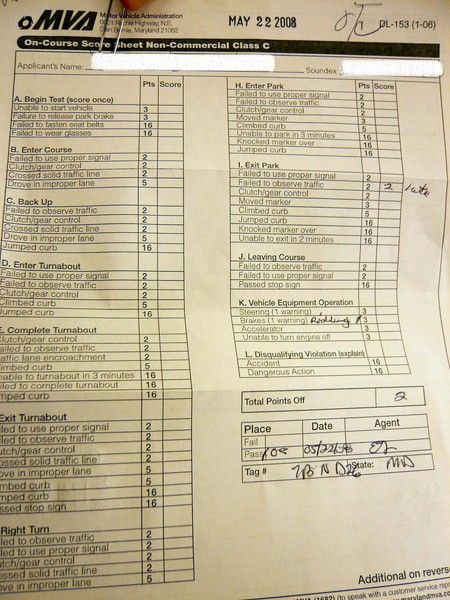 MVA Motor Vehicle Administration
6601 Ritchie Highway, N.E.
Glen Burnie, Maryland 21062
MAY 22 2008
DL-153 (1-06)
On-Course Score Sheet Non-Commercial Class C
Applicant's Name:
Soundex:
Pts Score
A. Begin Test (score once)
Unable to start vehicle 3
Failure to release park brake 3
Failed to fasten seat belts 16
Failed to wear glasses 16
B. Enter Course
Failed to use proper signal 2
Clutch/gear control 2
Crossed solid traffic line 2
Drove in improper lane 5
C. Back Up
Failed to observe traffic 2
Clutch/gear control 2
Crossed solid traffic line 2
Drove in improper lane 5
Jumped curb 16
D. Enter Turnabout
Failed to use proper signal 2
Failed to observe traffic 2
Clutch/gear control 2
Climbed curb 5
Jumped curb 16
E. Complete Turnabout
Clutch/gear control 2
Failed to observe traffic 2
Traffic lane encroachment 2
Climbed curb 5
Unable to turnabout in 3 minutes 16
Failed to complete turnabout 16
Jumped curb 16
Exit Turnabout
Failed to use proper signal 2
Failed to observe traffic 2
Clutch/gear control 2
Crossed solid traffic line 2
Drove in improper lane 5
Climbed curb 5
Jumped curb 16
Passed stop sign 16
Right Turn
Failed to observe traffic 2
Failed to use proper signal 2
Clutch/gear control 2
Crossed solid traffic line 2
Drove in improper lane 5
Pts Score
H. Enter Park
Failed to use proper signal 2
Failed to observe traffic 2
Clutch/gear control 2
Moved marker 3
Climbed curb 5
Unable to park in 3 minutes 16
Knocked marker over 16
Jumped curb 16
I. Exit Park
Failed to use proper signal 2
Failed to observe traffic 2 2 late
Clutch/gear control 2
Moved marker 3
Climbed curb 5
Jumped curb 16
Knocked marker over 16
Unable to exit in 2 minutes 16
J. Leaving Course
Failed to observe traffic 2
Failed to use proper signal 2
Passed stop sign 16
K. Vehicle Equipment Operation
Steering (1 warning) 3
Brakes (1 warning) Riding 3
Accelerator 3
Unable to turn engine off 3
L. Disqualifying Violation (explain)
Accident 16
Dangerous Action 16
Total Points Off 2
Place Date Agent
Fail
Pass 05/22/08
Tag # State: MD
Additional on reverse